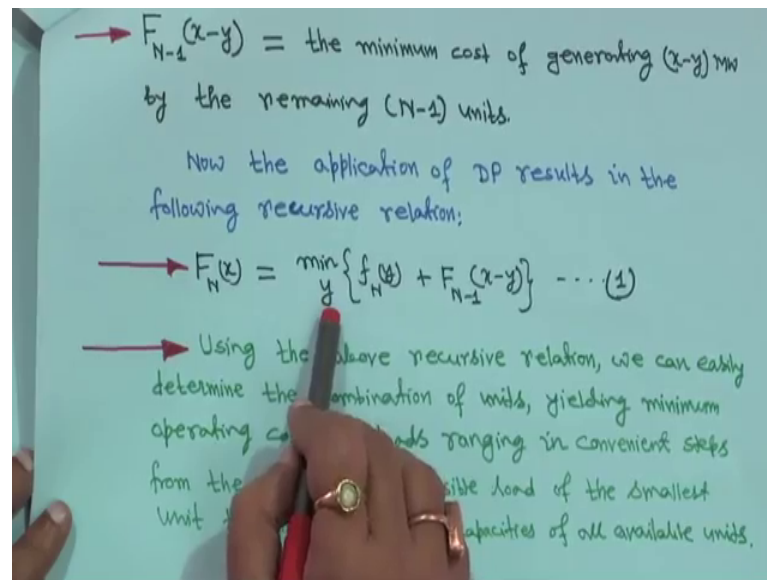 F_{N-1}(x-y) = the minimum cost of generating (x-y) MW
by the remaining (N-1) units.
Now the application of DP results in the
following recursive relation:
F_N(x) = min_y {f_N(y) + F_{N-1}(x-y)} ---- (1)
Using the above recursive relation, we can easily
determine the combination of units, yielding minimum
operating loads ranging in convenient steps
from the load of the smallest
unit capacities of all available units.